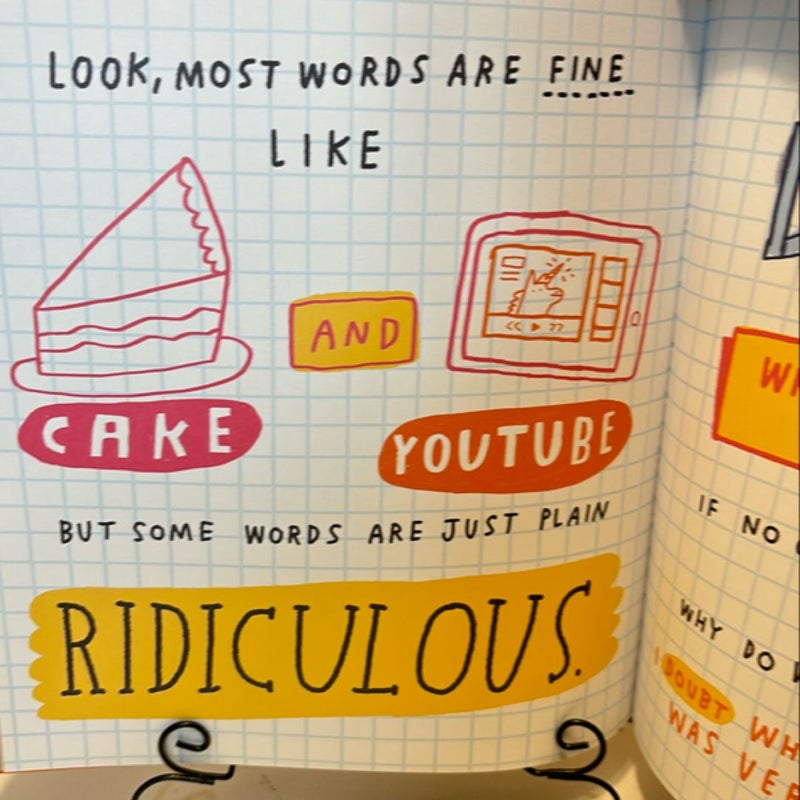 LOOK, MOST WORDS ARE FINE
LIKE
AND
CAKE
YOUTUBE
BUT SOME WORDS ARE JUST PLAIN
RIDICULOUS.
IF NO
WHY DO
I DOUBT
WAS